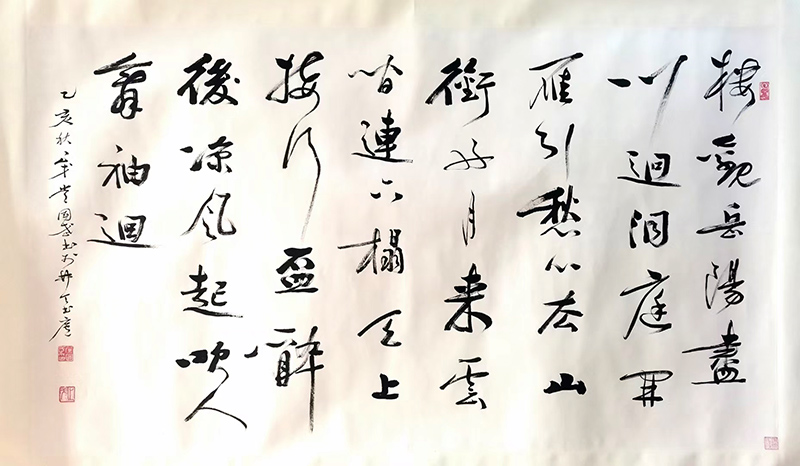 樓觀岳陽盡
川迴洞庭開
雁引愁心去山
銜好月来雲
間連下榻天上
接行盃醉
後凉風起吹人
舞袖迴
乙亥秋